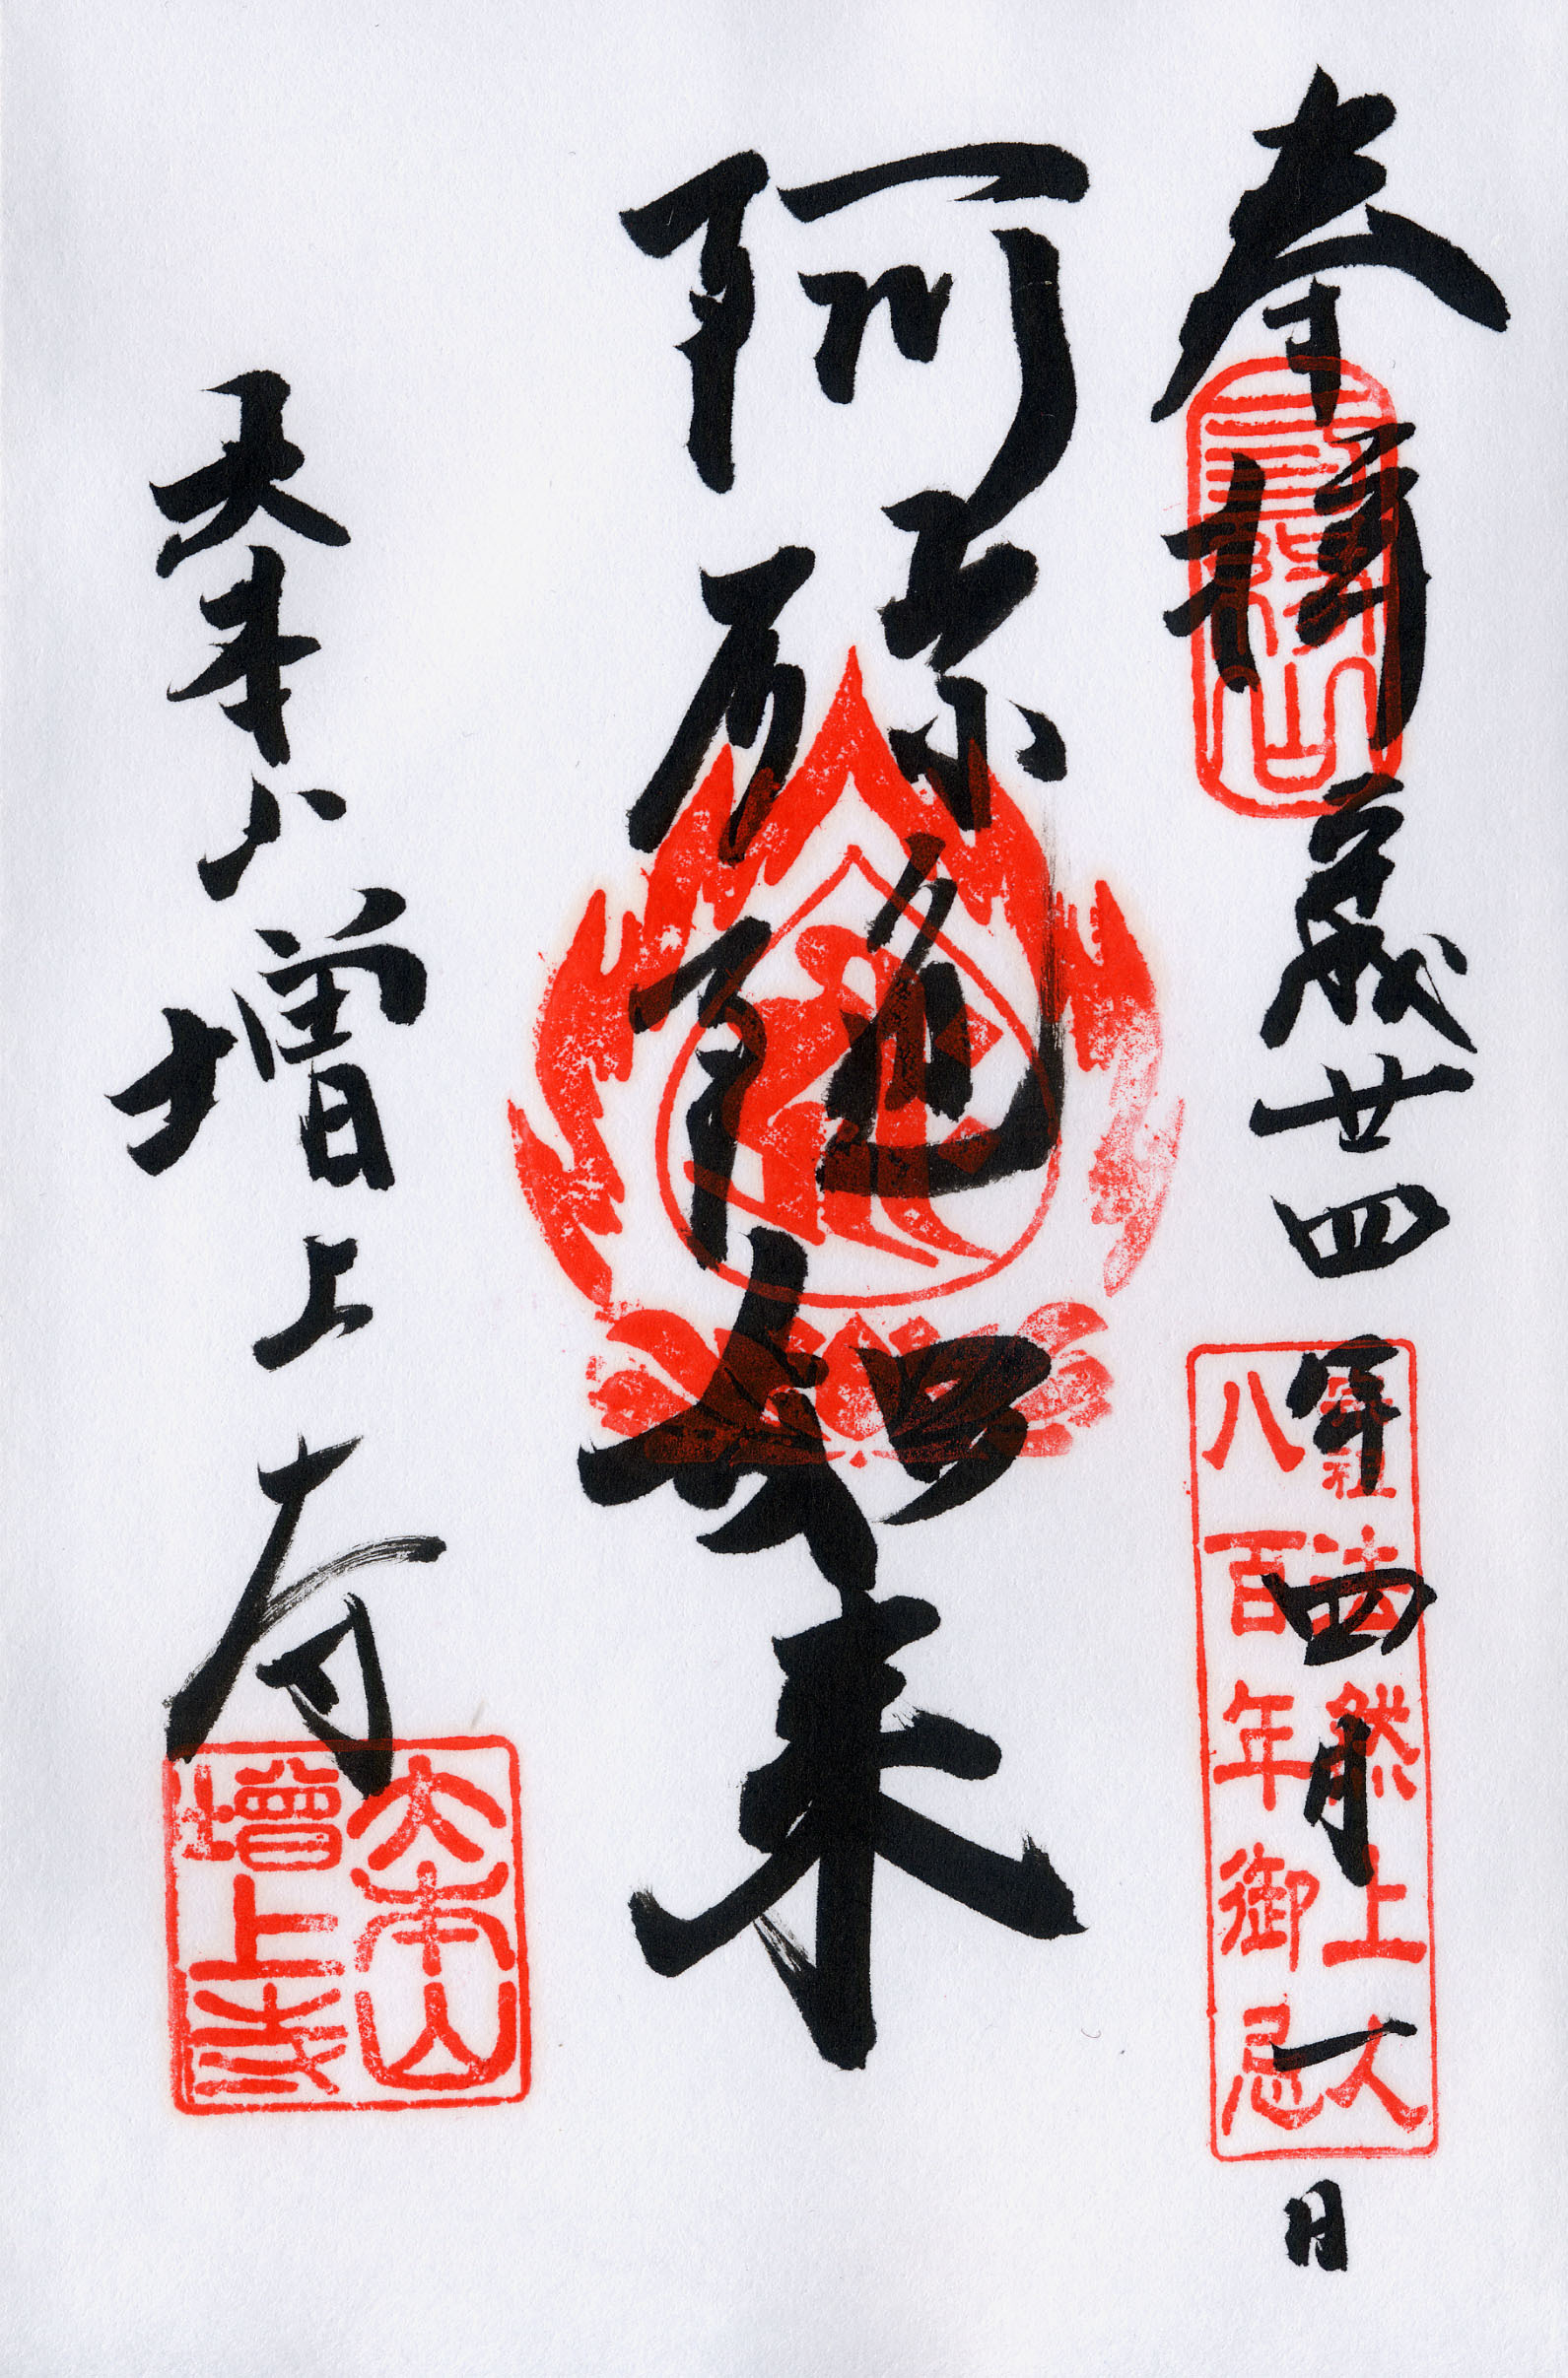 奉拝 平成廿四年四月一日
三縁山
法然上人
八百年御忌
阿弥陀如来
大本山 増上寺
大本山
增上寺